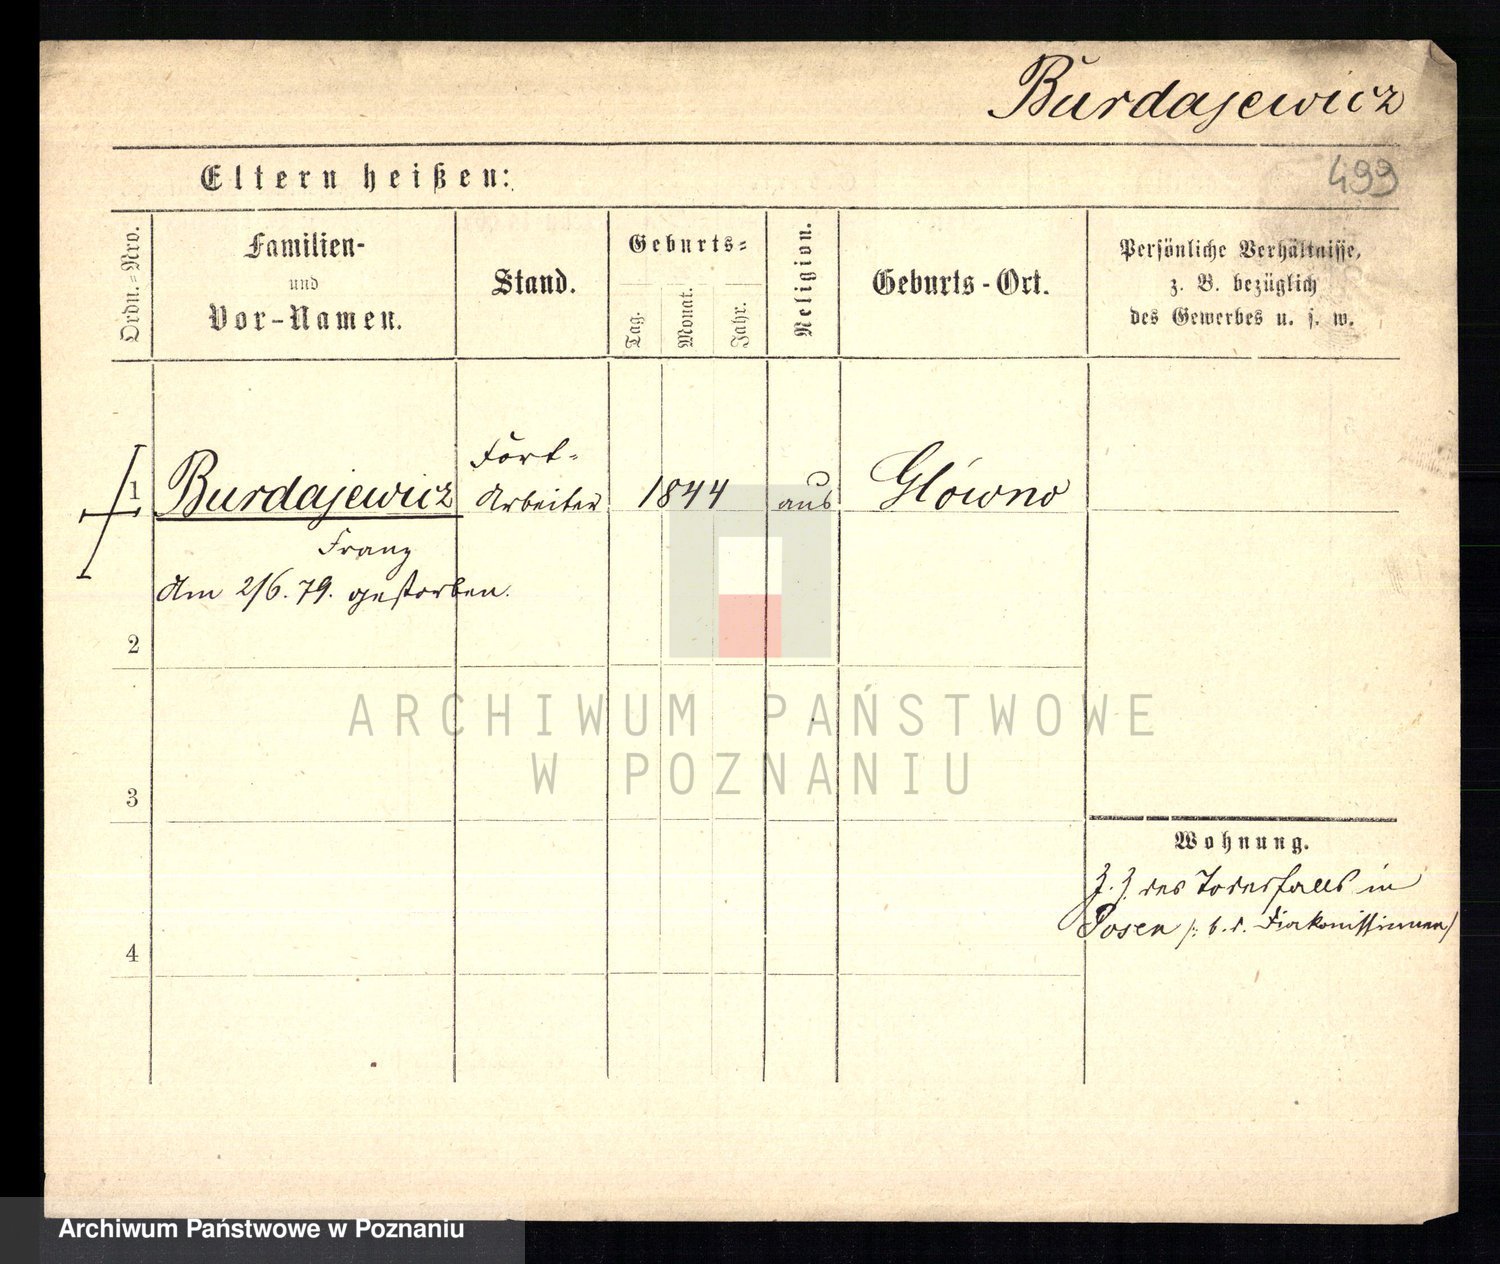 Burdajewicz
499
Eltern heißen:
Ordn.=Nro.
Familien-
und
Vor-Namen.
Stand.
Geburts=
Tag.
Monat.
Jahr.
Religion.
Geburts-Ort.
Persönliche Verhältnisse,
z. B. bezüglich
des Gewerbes u. s. w.
1
Burdajewicz
Franz
Am 2/6. 79. gestorben.
Fort-
Arbeiter
1844
aus
Glówno
2
3
4
Wohnung.
z. Z. des Todesfalls in
Posen /: b. d. Diakonissinnen/
ARCHIWUM PAŃSTWOWE
W POZNANIU
Archiwum Państwowe w Poznaniu